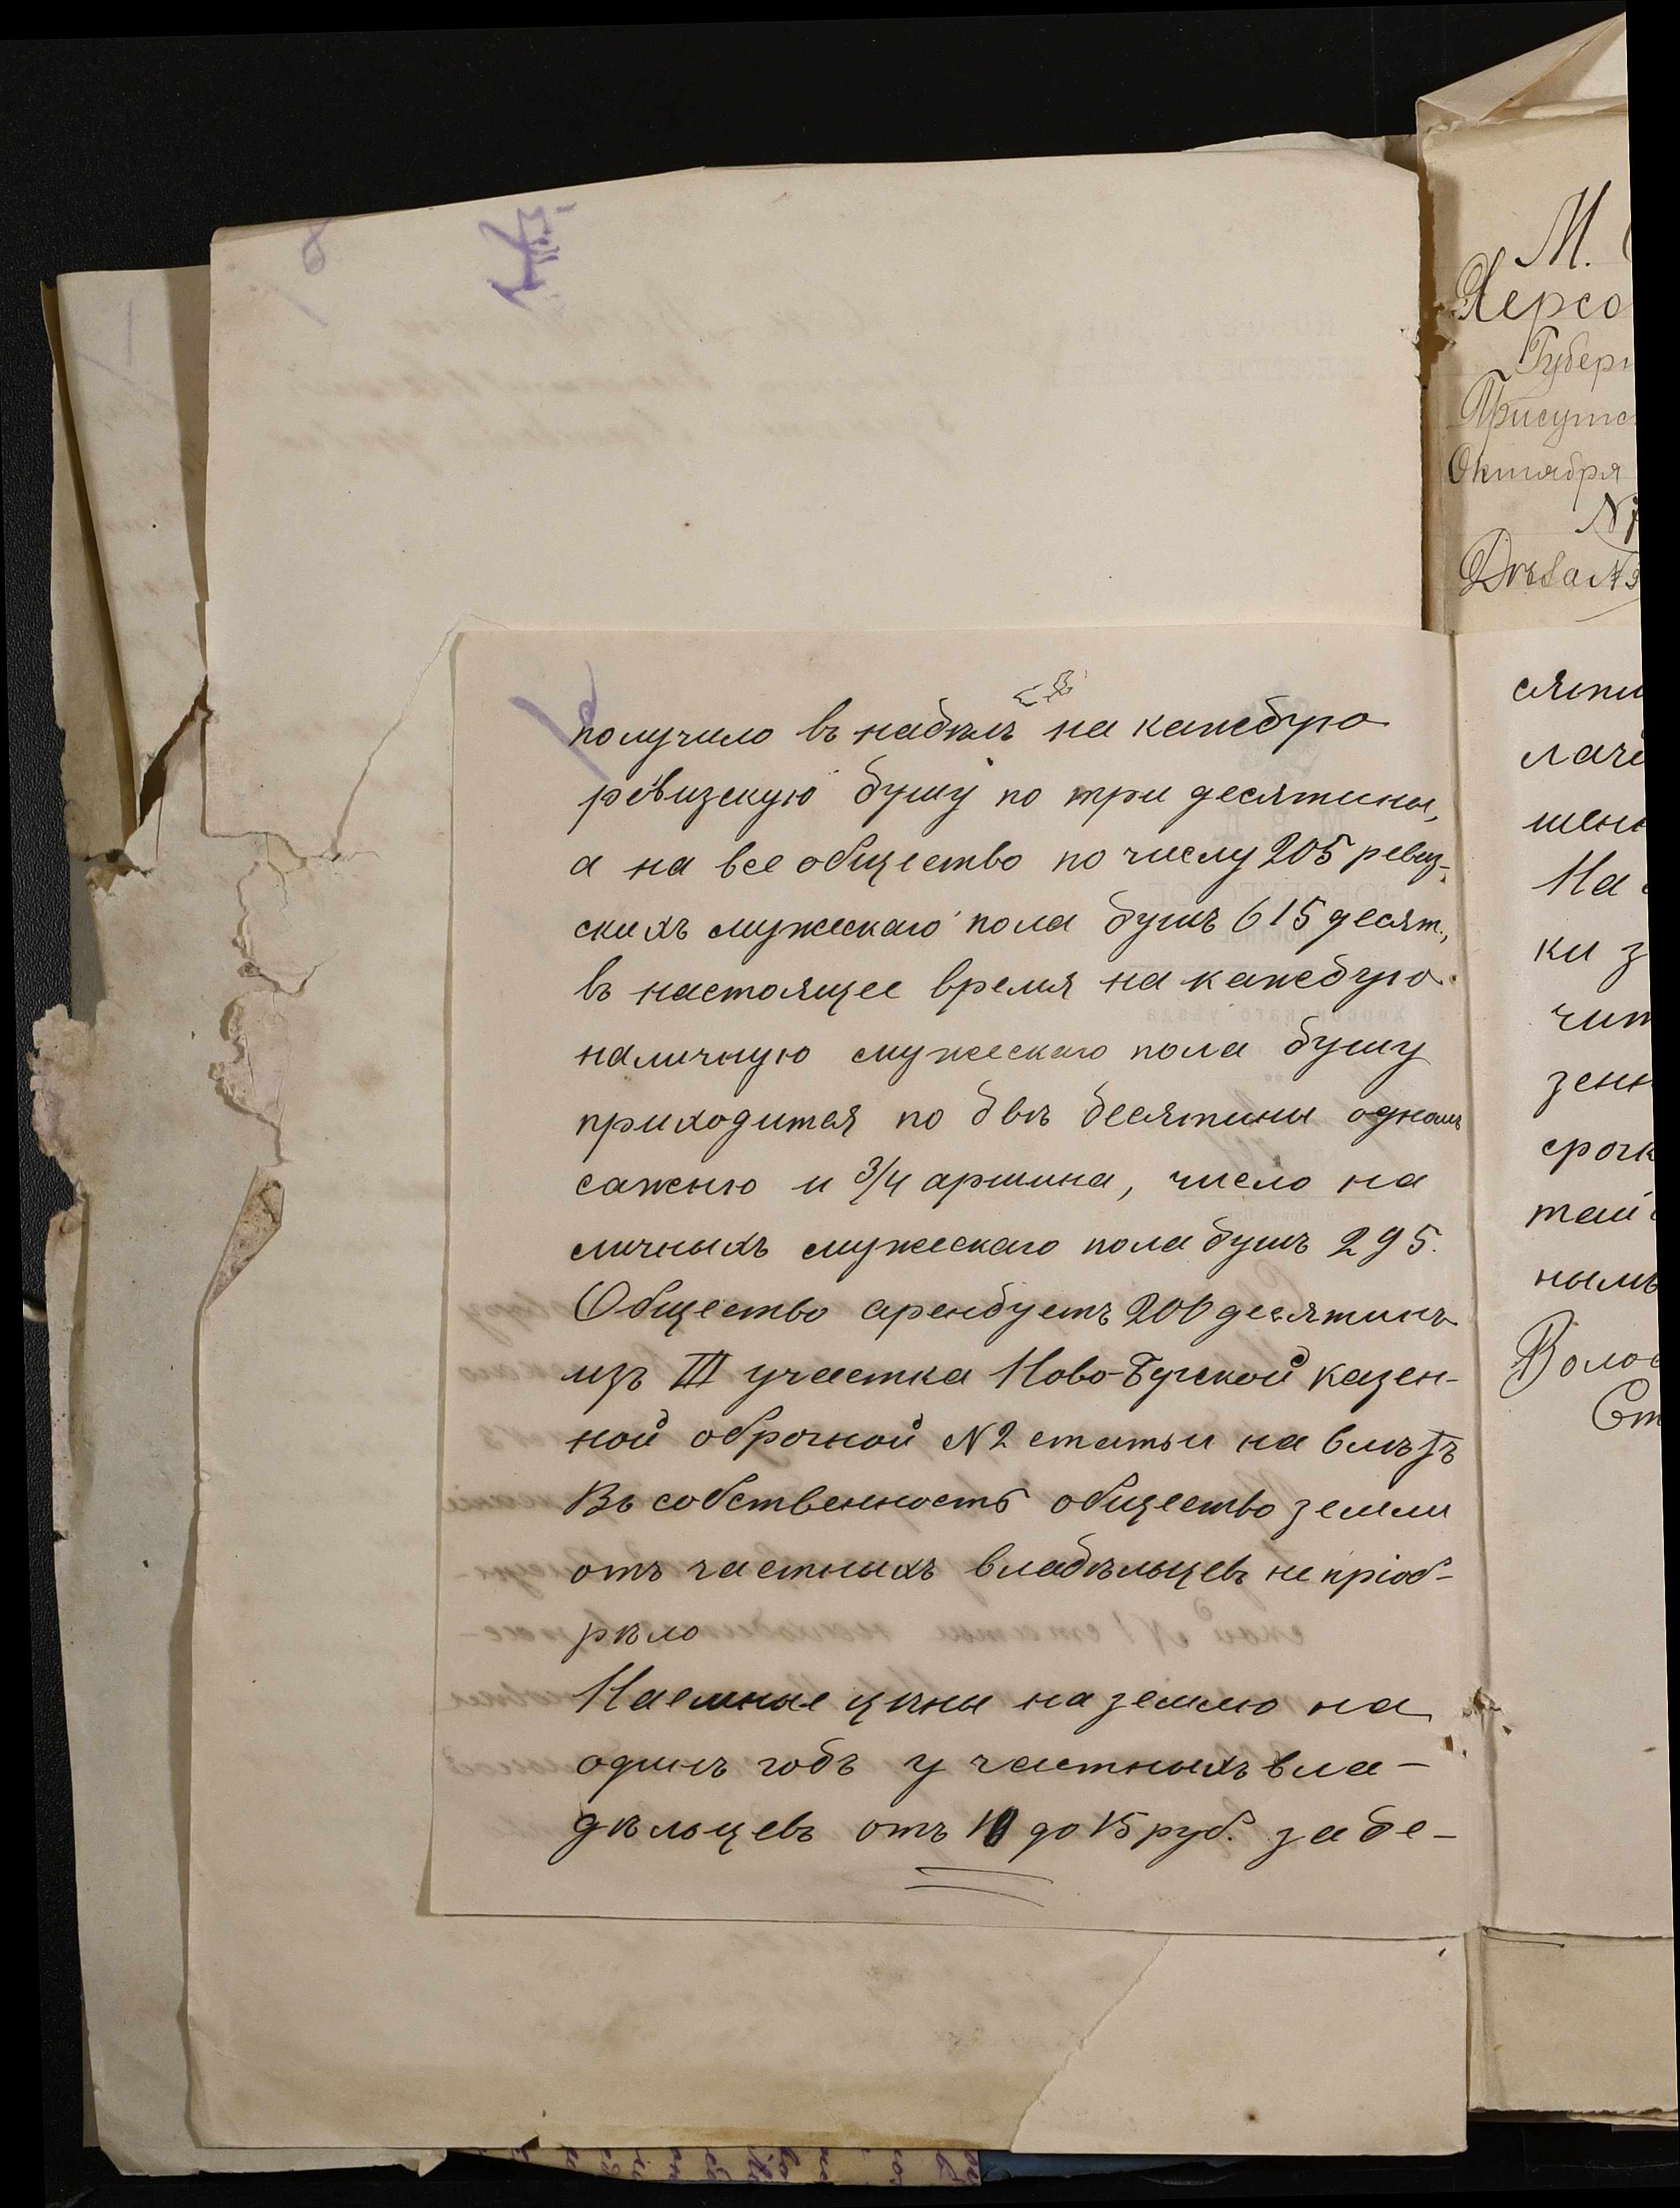 получило въ надѣлъ на каждую
ревизскую душу по три десятины,
а на все общество по числу 205 ревиз-
скихъ мужескаго пола душъ 615 десят.,
въ настоящее время на каждую
наличную мужескаго пола душу
приходится по двѣ десятины одному
саженю и 3/4 аршина, число на
личныхъ мужескаго пола душъ 295.
Общество арендуетъ 200 десятинъ
изъ III участка Ново-Бугской казен-
ной оброчной №2 статьи на
Въ собственность общество земли
отъ частныхъ владѣльцевъ не пріоб-
рѣло
Наемные цѣны на землю на
одинъ годъ у частныхъ вла-
дѣльцевъ отъ 10 до 15 руб. за де-
М.
Херсо
Губерн
Присутс
Октября
№
Дѣла №
сяти
лаче
мен
На
ки з
чит
зенн
срочн
тай
нымъ
Волос
Ст